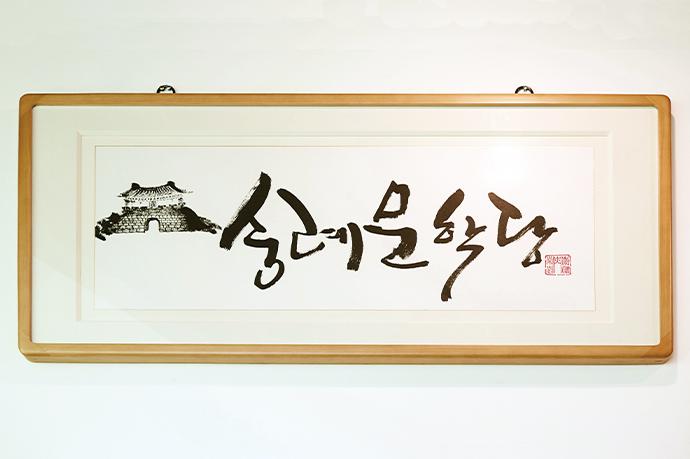 숭례문학당